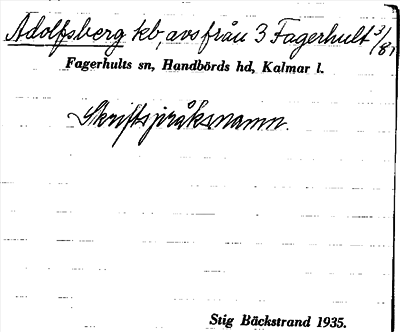 Adolfsberg kb, avs från 3 Fagerhult 3/8
Fagerhults sn, Handbörds hd, Kalmar l.
Skriftspråksnamn.
Stig Bäckstrand 1935.